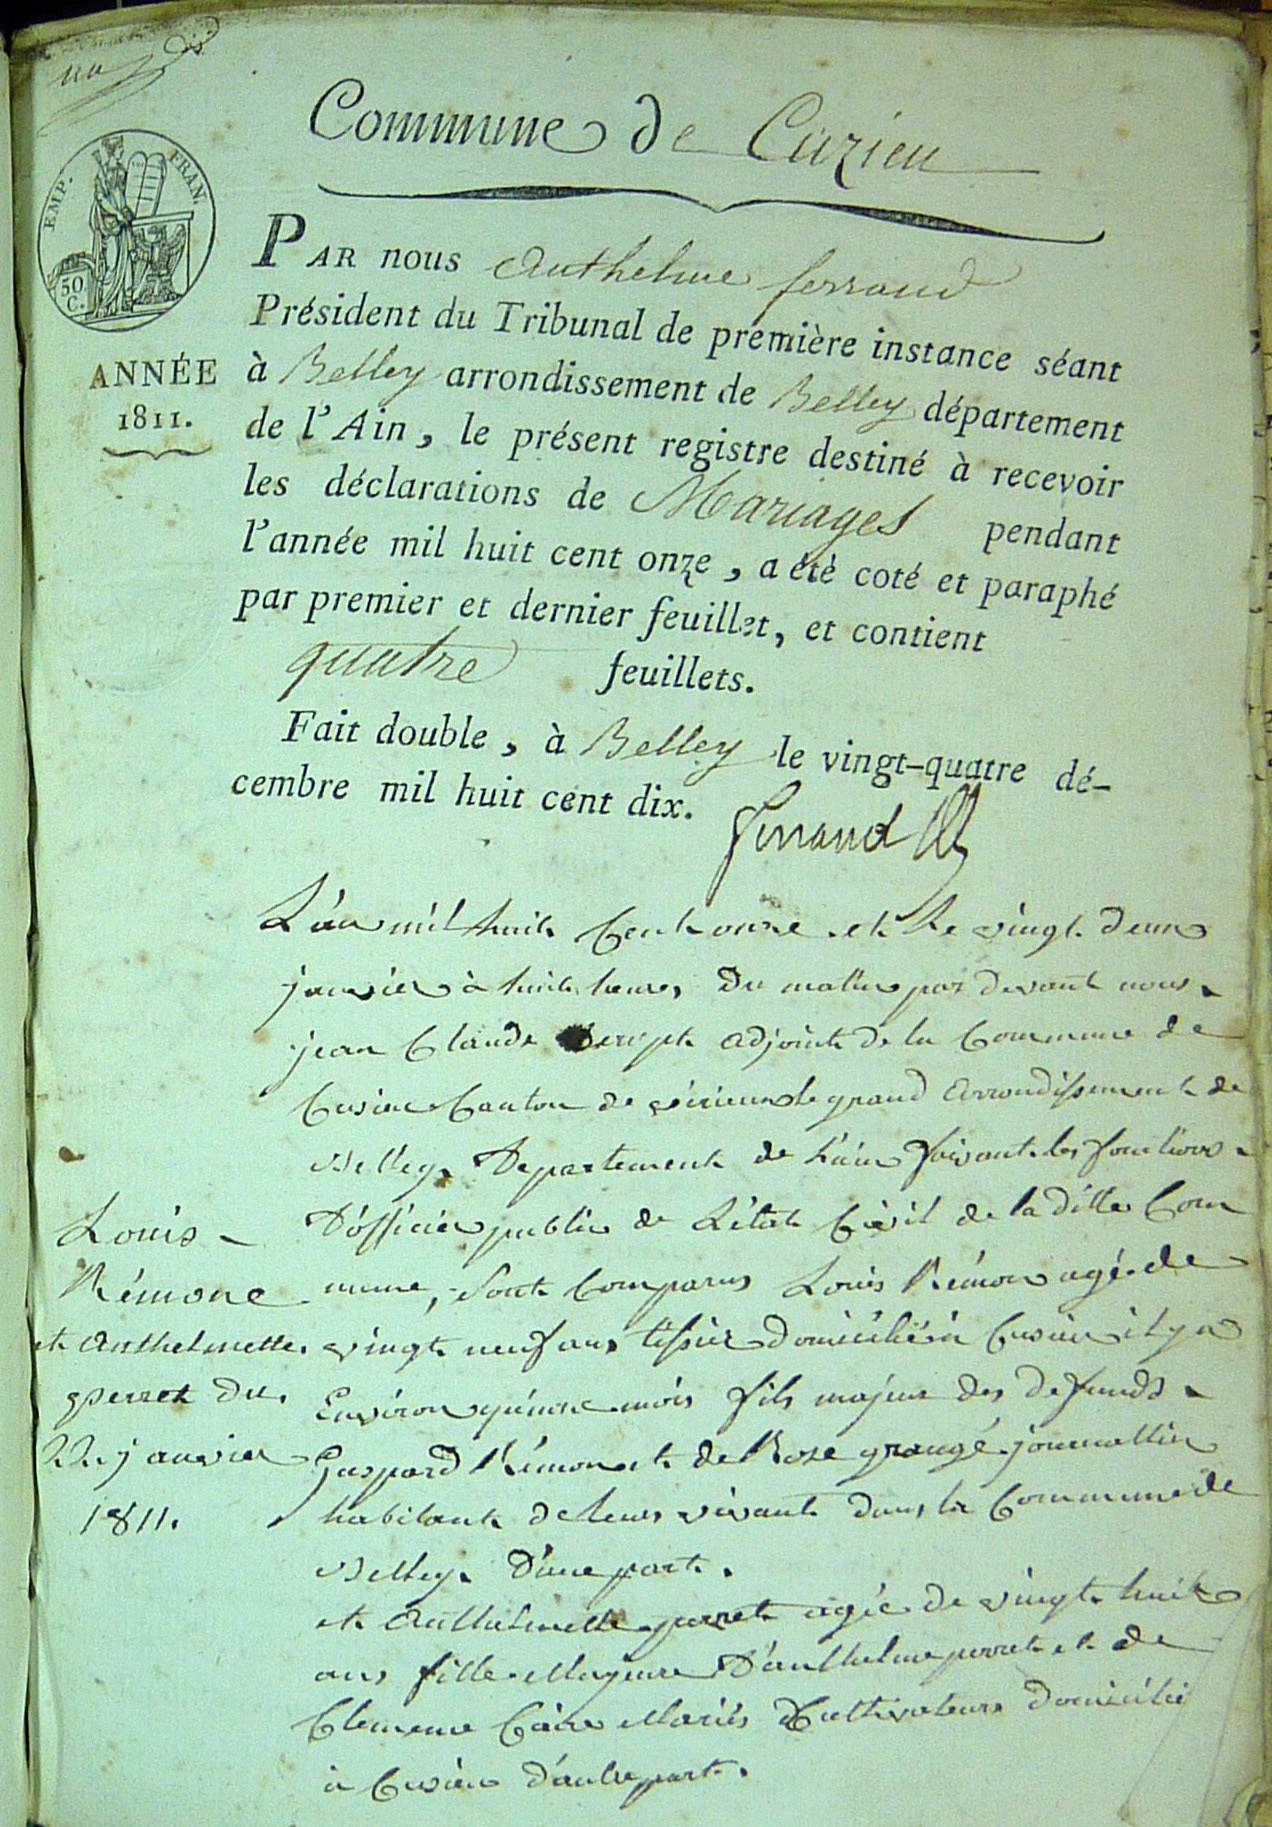 Commune de Cuzieu
EMP. FRAN.
50 C.
ANNÉE
1811.
PAR nous Anthelme ferrand
Président du Tribunal de première instance séant
à Belley arrondissement de Belley département
de l'Ain, le présent registre destiné à recevoir
les déclarations de Mariages pendant
l'année mil huit cent onze, a été coté et paraphé
par premier et dernier feuillet, et contient
quatre feuillets.
Fait double, à Belley le vingt-quatre dé-
cembre mil huit cent dix.
Ferrand
L'an mil huit Cent onze et le vingt deux
janvier à huit heures Du matin par devant nous
jean Claude adjoint de la Commune de
Cusieu Canton de virieu le grand arrondissement de
Belley Departement de L'ain faisant les fonctions
D'officier public de L'état Civil de la ditte Com
mune, Sont Comparus Louis Rémon agé de
vingt neuf ans tissier domicilié à Cusieu il y a
Environ quinze mois fils majeur des defunds
Gaspard Rémon et de Rose grangé journallier
habitant de leurs vivant dans la Commune de
Belley D'une part.
et Anthelmette perret agée de vingt huit
ans fille Majeure D'anthelme perret et de
Clemence Caire Mariés Cultivateurs domicilié
à Cusieu d'autre part.
Louis
Rémone
et Anthelmette
perret du
22 janvier
1811.